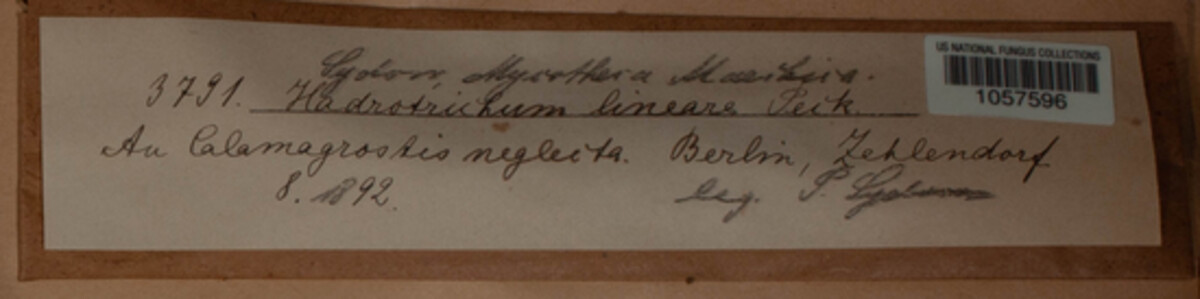 Sydow, Mycotheca Marchica.
3791. Hadrotrichum lineare Peck.
An Calamagrostis neglecta. Berlin, Zehlendorf
8. 1892. leg. P. Sydow
US NATIONAL FUNGUS COLLECTIONS
1057596